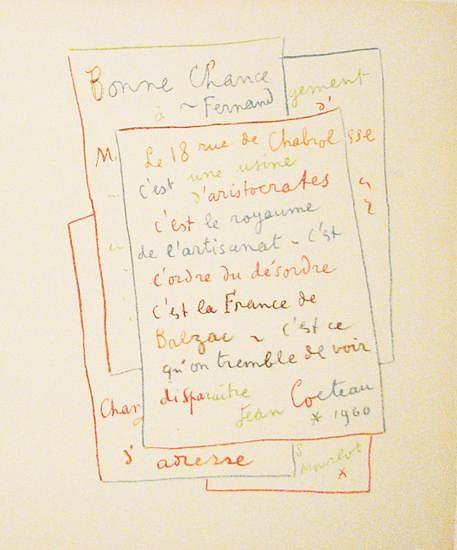 Bonne Chance
à ~ Fernand gement
d'
M. Le 18 rue de Chabrol sse
c'est une usine
d'aristocrates
c'est le royaume
de l'artisanat ~ c'est
l'ordre du désordre
c'est la France de
Balzac ~ c'est ce
qu'on tremble de voir
Chan disparaitre
Jean Cocteau
* 1960
d' adresse
Mourlot